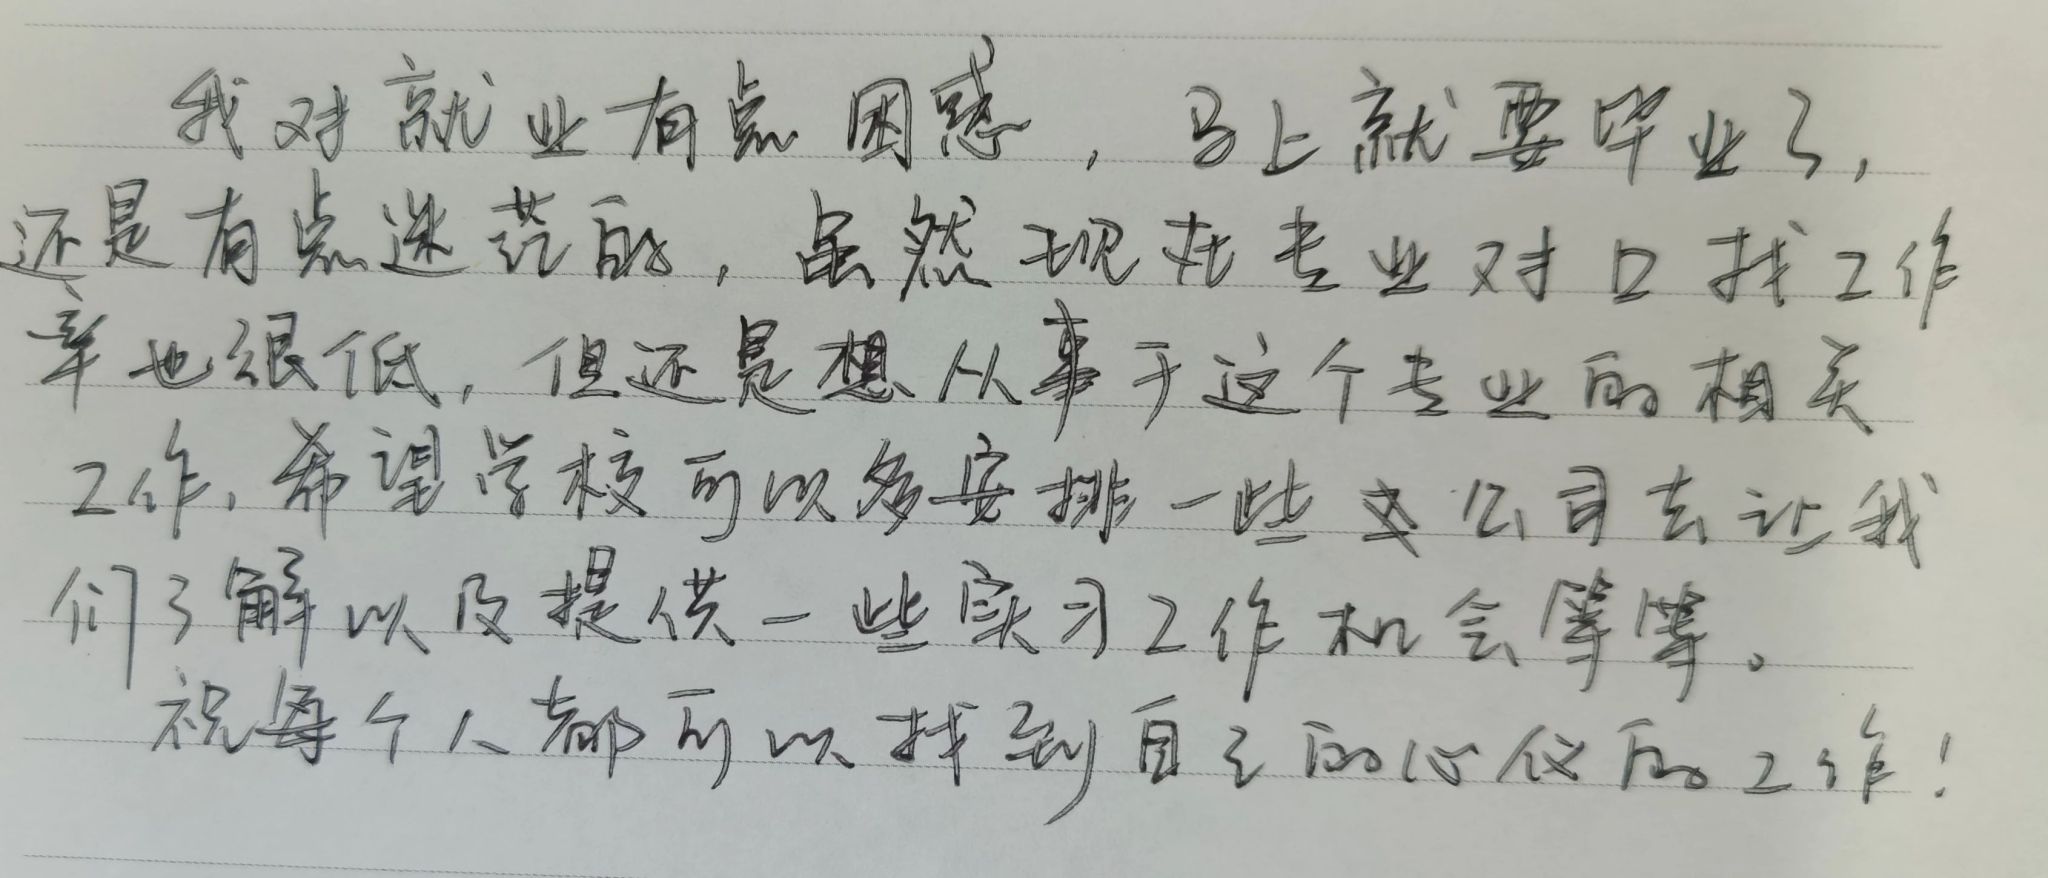 我对就业有点困惑，马上就要毕业了，
还是有点迷茫的，虽然现在专业对口找工作
率也很低，但还是想从事于这个专业的相关
工作，希望学校可以多安排一些公司去让我
们了解以及提供一些实习工作机会等等。
祝每个人都可以找到自己的心仪的工作！